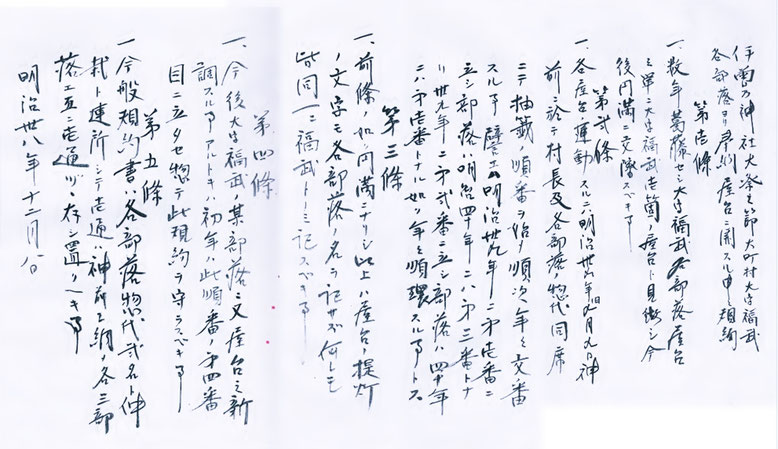 伊曽乃神社大祭之節大町村大字福武
各部落ヨリ奉納屋台ニ関スル申シ規約
第壱條
一、数年葛藤セシ大字福武各部落屋台
ミ単ニ大字福武壱箇ノ屋台ト見做シ今
後円満ニ交際スベキ事
第弐條
一、各屋台ノ運動スルニハ明治卅八年旧九月九日神
前ニ於テ村長及各部落ノ惣代同席
ニテ抽籤ノ順番ヲ始メ順次年々交番
スル事譬エハ明治卅九年ニ第壱番ニ
立シ部落ハ明治四十年ニハ第三番トナ
リ卅九年ニ第弐番ニ立シ部落ハ四十年
ニハ第壱番トナル如ク年々順環スル事トス
第三條
一、前條ノ如ク円満ニナリシ此上ハ屋台ノ提灯
ノ文字モ各部落ノ名ヲ記サズ何レモ
皆同一ニ福武トノミ記スベキ事
第四條
一、今後大字福武ノ某部落ニ又屋台之新
調スル事アルトキハ初年ハ此順番ノ第四番
目ニ立タセ惣テ此規約ヲ守ラスベキ事
第五條
一、今般規約書ハ各部落惣代弐名ト仲
裁ト連所シテ壱通ハ神前ニ納ノ各三部
落エ五ニ壱通ヅヽ存シ置クヘキ事
明治卅八年十二月八日